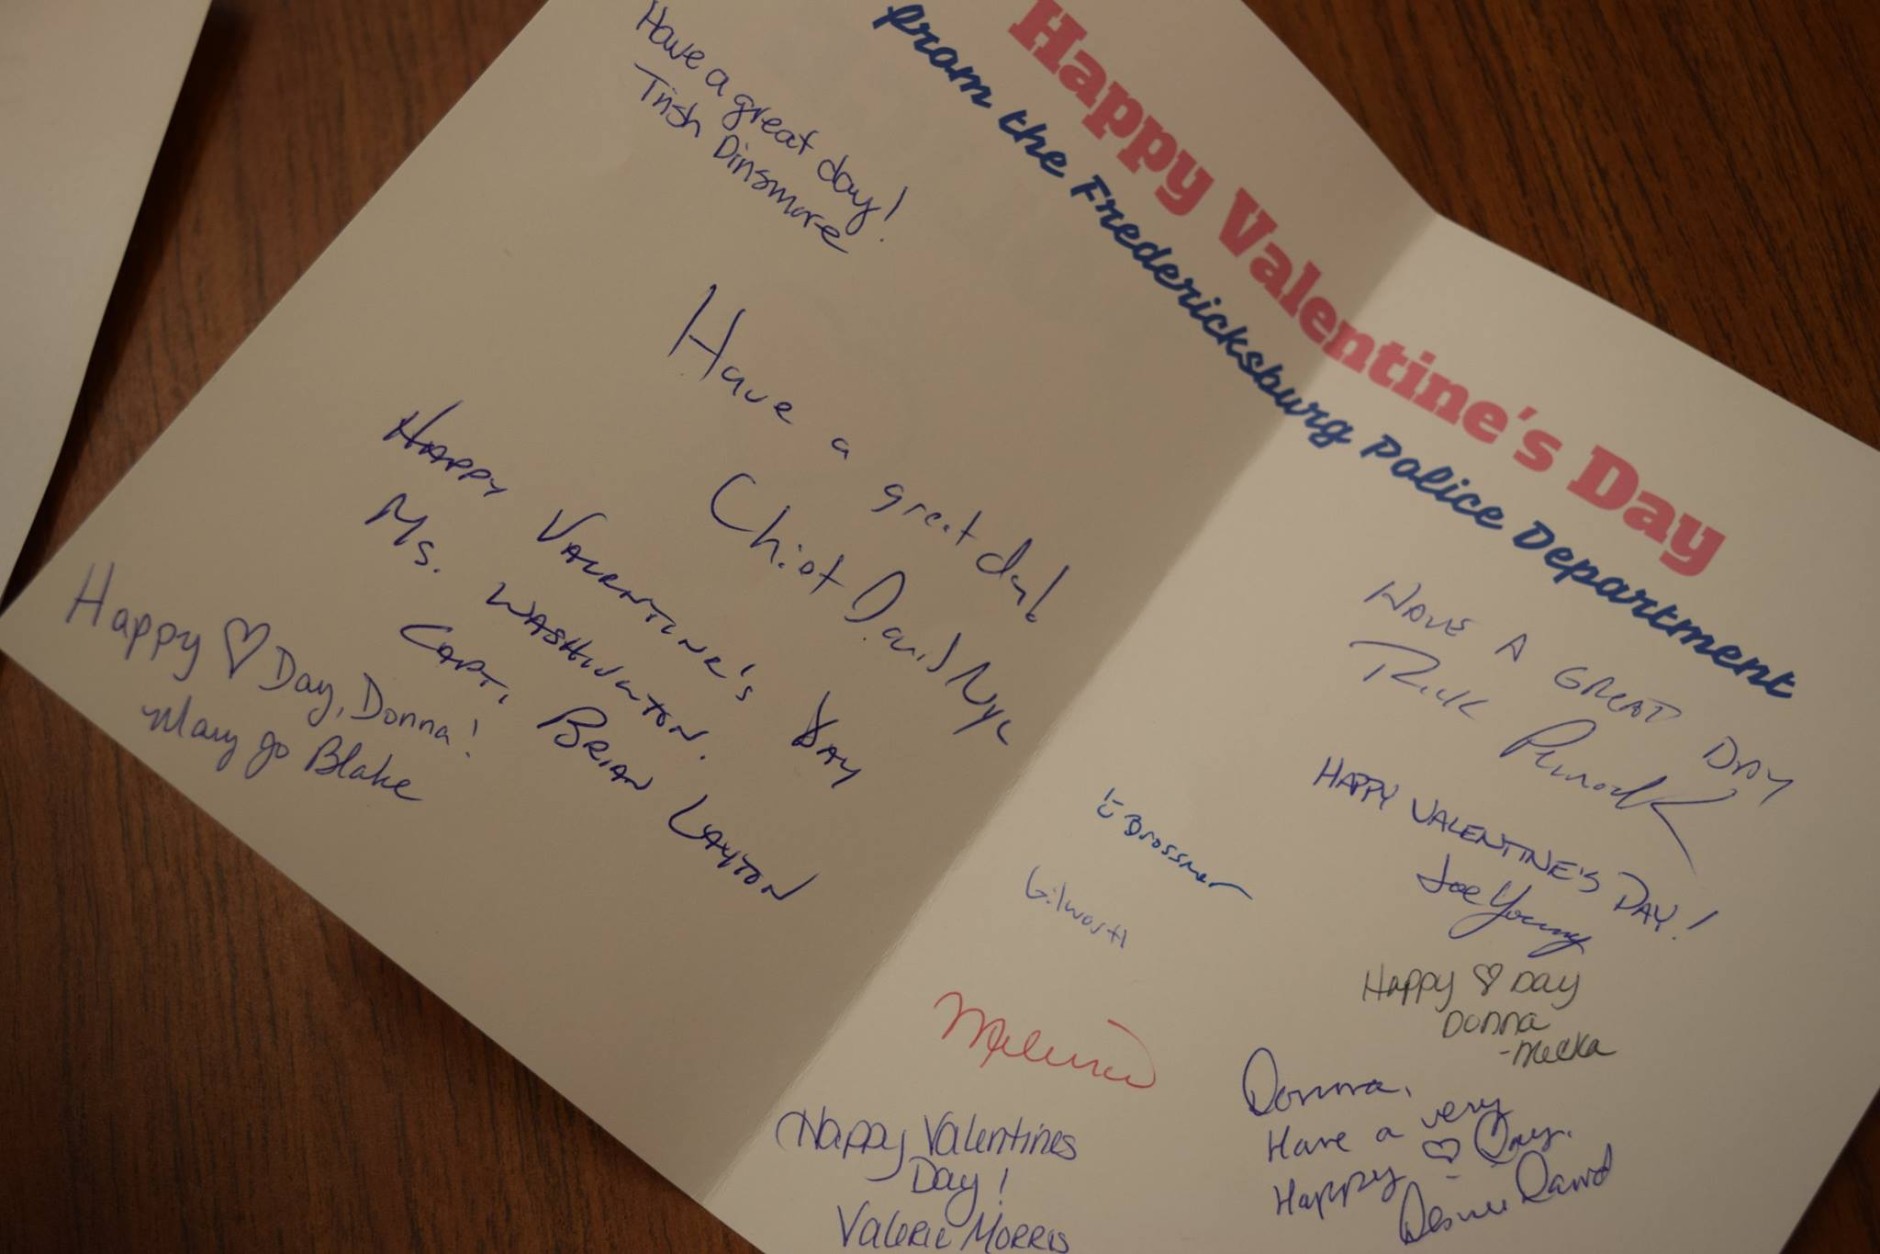 Happy Valentine's Day
from the Fredericksburg Police Department
Have a great day!
Trish Dinsmore
Have a great day!
Chief David Nye
Happy Valentine's Day
Ms. Washington.
Capt. Brian Layton
Happy ♡ Day, Donna!
Mary Jo Blake
HAVE A GREAT DAY
Rick
HAPPY VALENTINE'S DAY!
Joe Young
Happy ♡ Day
Donna
-Mecka
Donna,
Have a very
Happy ♡ Day.
Happy Valentines
Day!
Valerie Morris